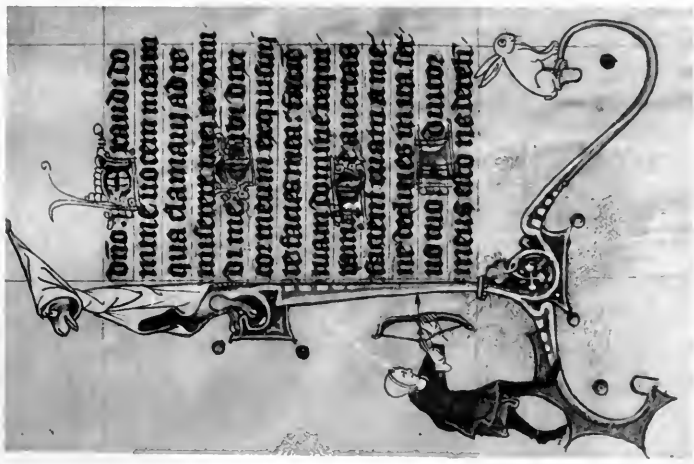 dno. Exaudi do
mine uocem meam
qua clamaui ad te
miserere mei et exau
di me Tibi dix
cor meum exquisiuit
te facies mea faciem
tuam domine requi
ram Ne auertas
faciem tuam a me
ne declines in ira a ser
uo tuo Adiutor
meus esto ne dereli